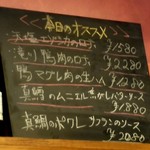 本日のオススメ
鴨肉のロティ ¥2280
鴨マグレ肉の生ハム ¥1280
真鯛のムニエル焦がしバターソース
¥1880
真鯛のポワレ サフランのソース
¥2080